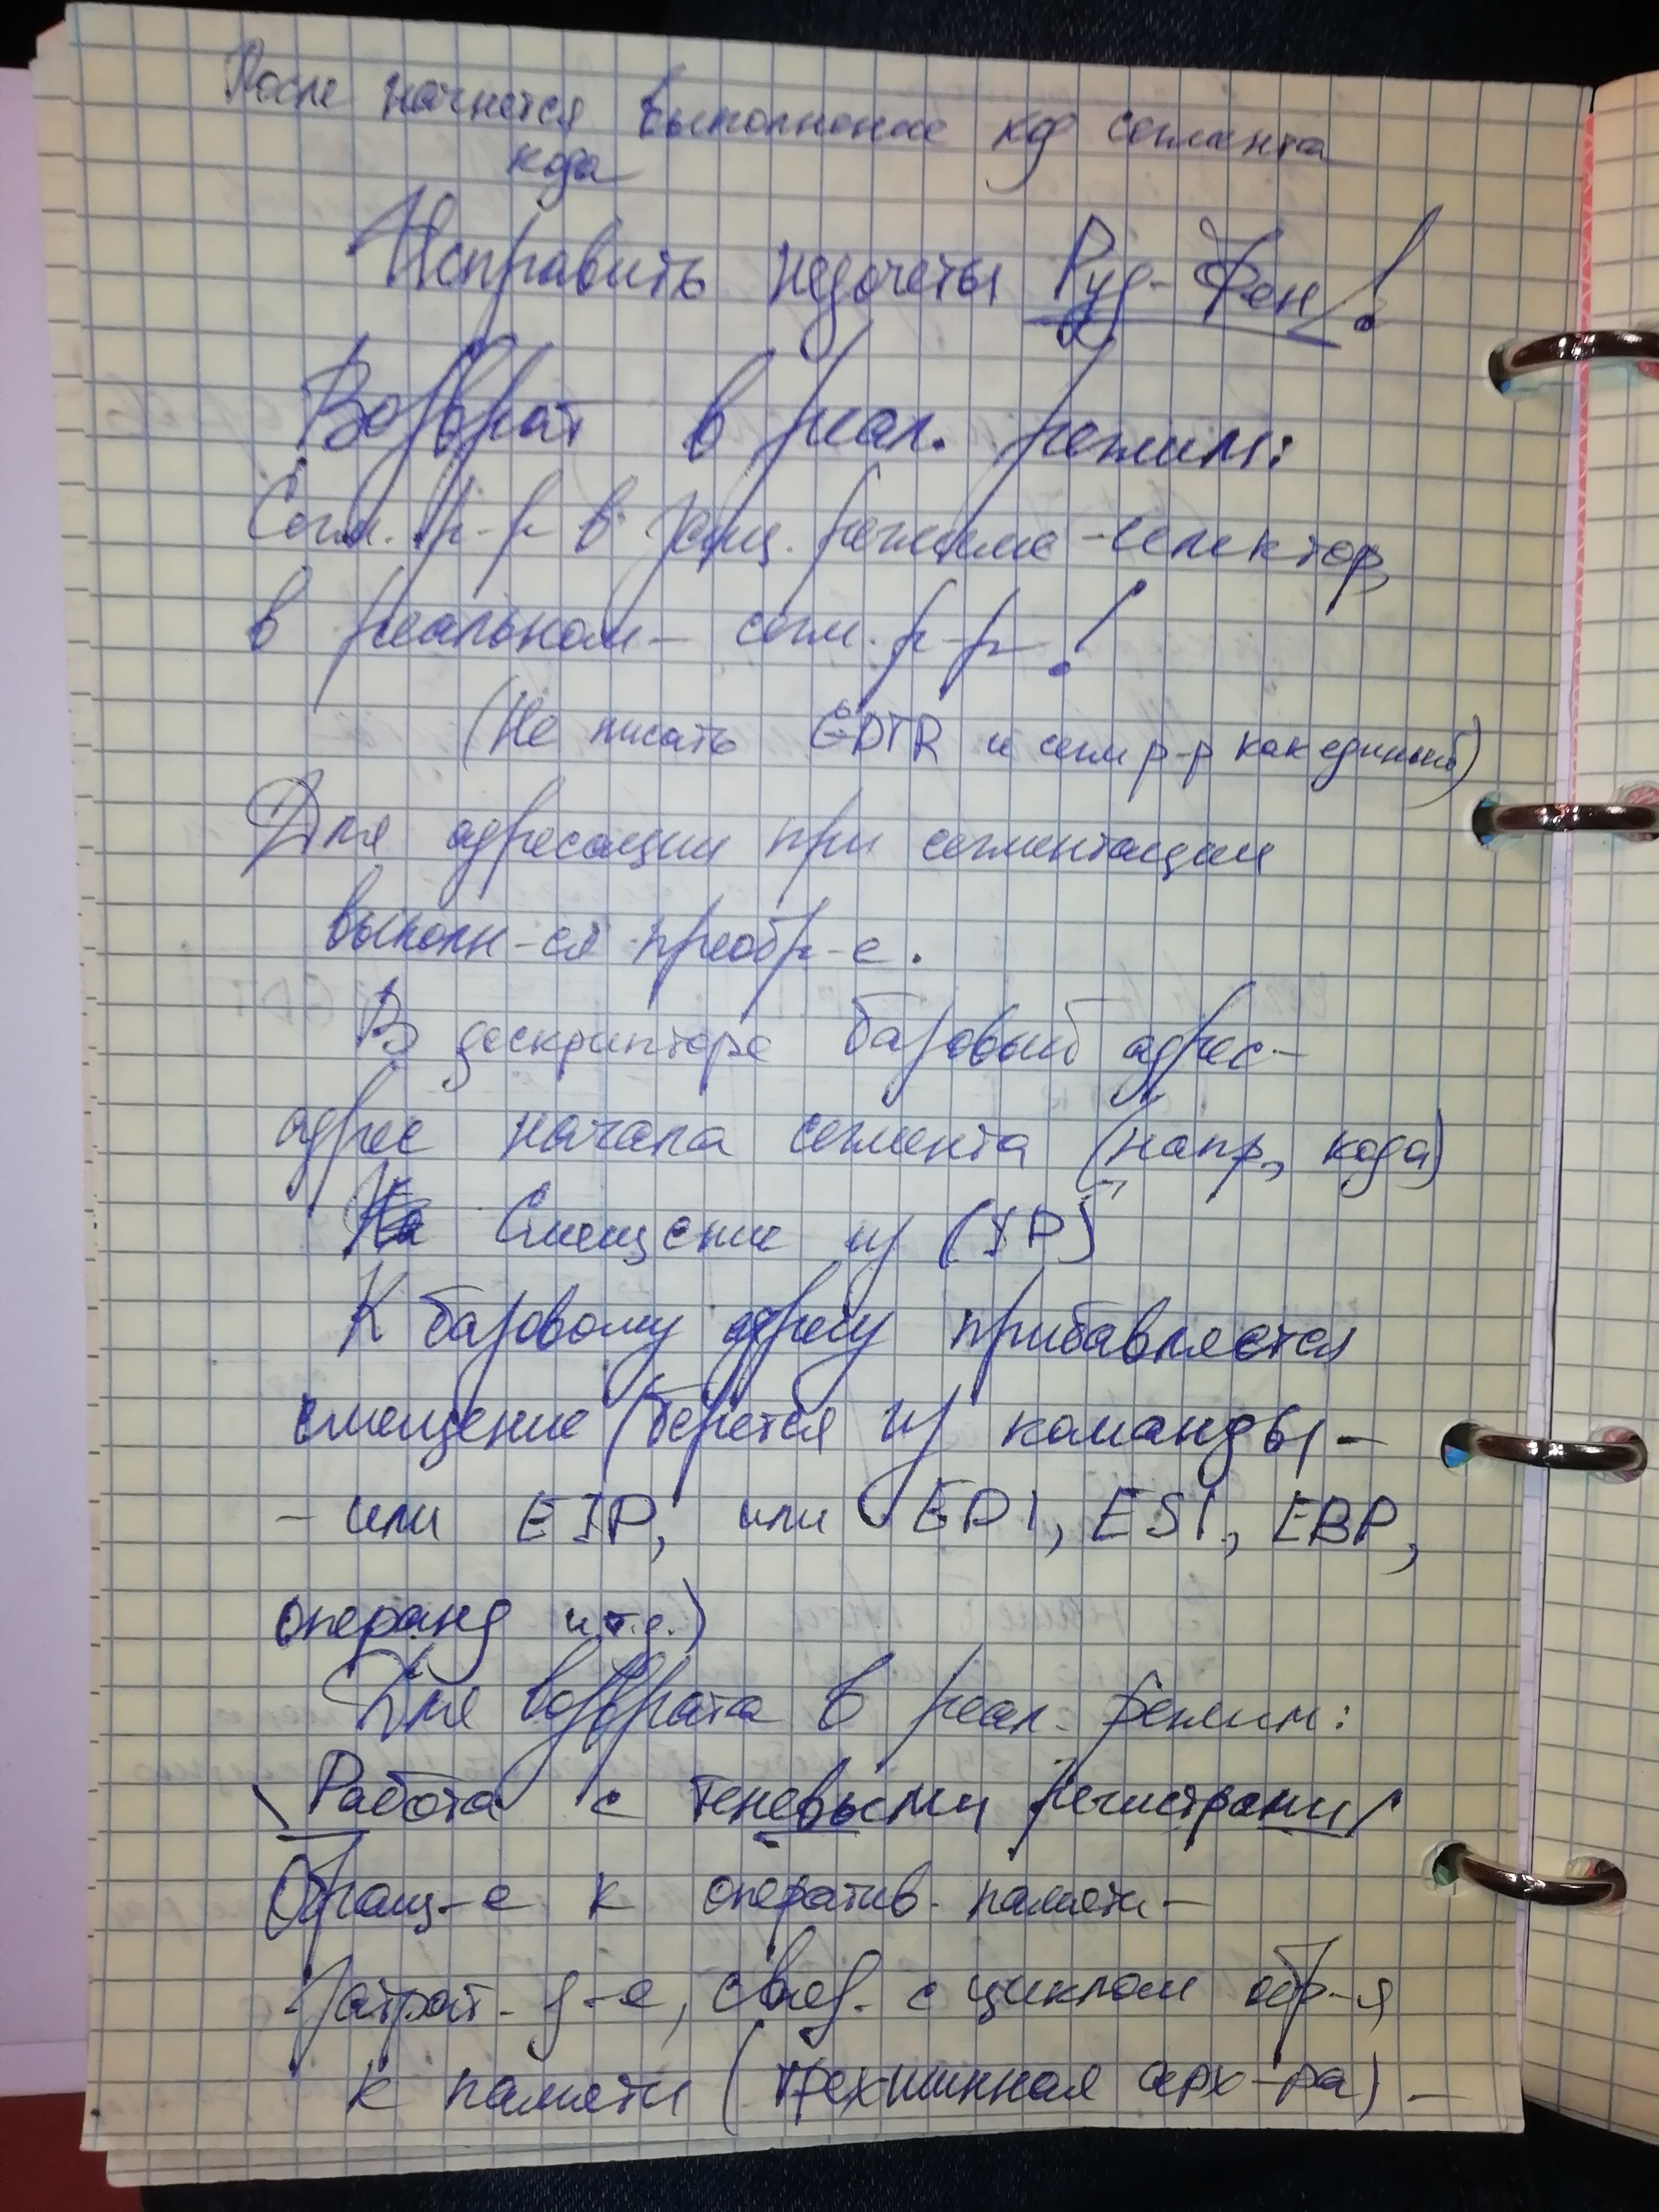 После начнется выполнение код сегмента
кода
Исправить недочеты Руд-Фен!
Возврат в реал. режим:
Сегм. р-р в защ. режиме - селектор,
в реальном - сегм. р-р!
(Не писать GDTR и сегм р-р как единый)
Для адресации при сегментации
выполн-ся преобр-е.
В дескрипторе базовый адрес -
адрес начала сегмента (напр, кода)
Смещение из (IP)
К базовому адресу прибавляется
смещение (берется из команды -
- или EIP, или EDI, ESI, EBP,
операнд и т.д.)
Для возврата в реал. режим:
Работа с теневыми регистрами
Обращ-е к оператив. памяти -
затрат. д-е, связ. с циклом обр-я
к памяти (трех-шинная арх-ра) -